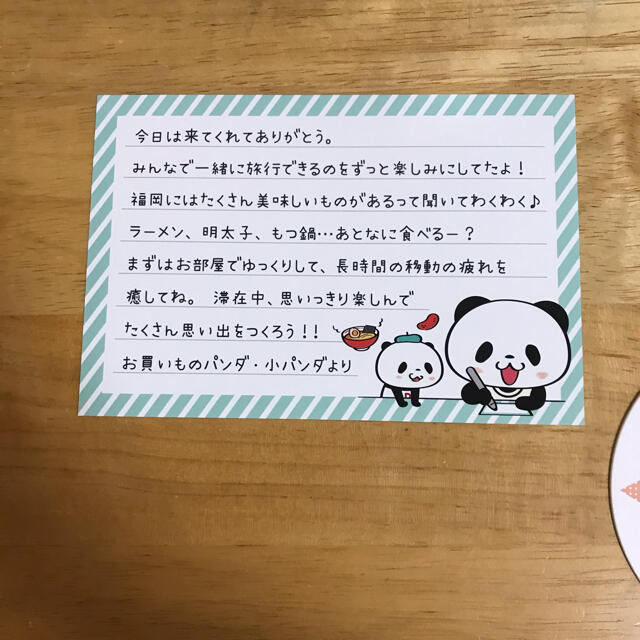 今日は来てくれてありがとう。
みんなで一緒に旅行できるのをずっと楽しみにしてたよ！
福岡にはたくさん美味しいものがあるって聞いてわくわく♪
ラーメン、明太子、もつ鍋…あとなに食べるー？
まずはお部屋でゆっくりして、長時間の移動の疲れを
癒してね。 滞在中、思いっきり楽しんで
たくさん思い出をつくろう！！
お買いものパンダ・小パンダより